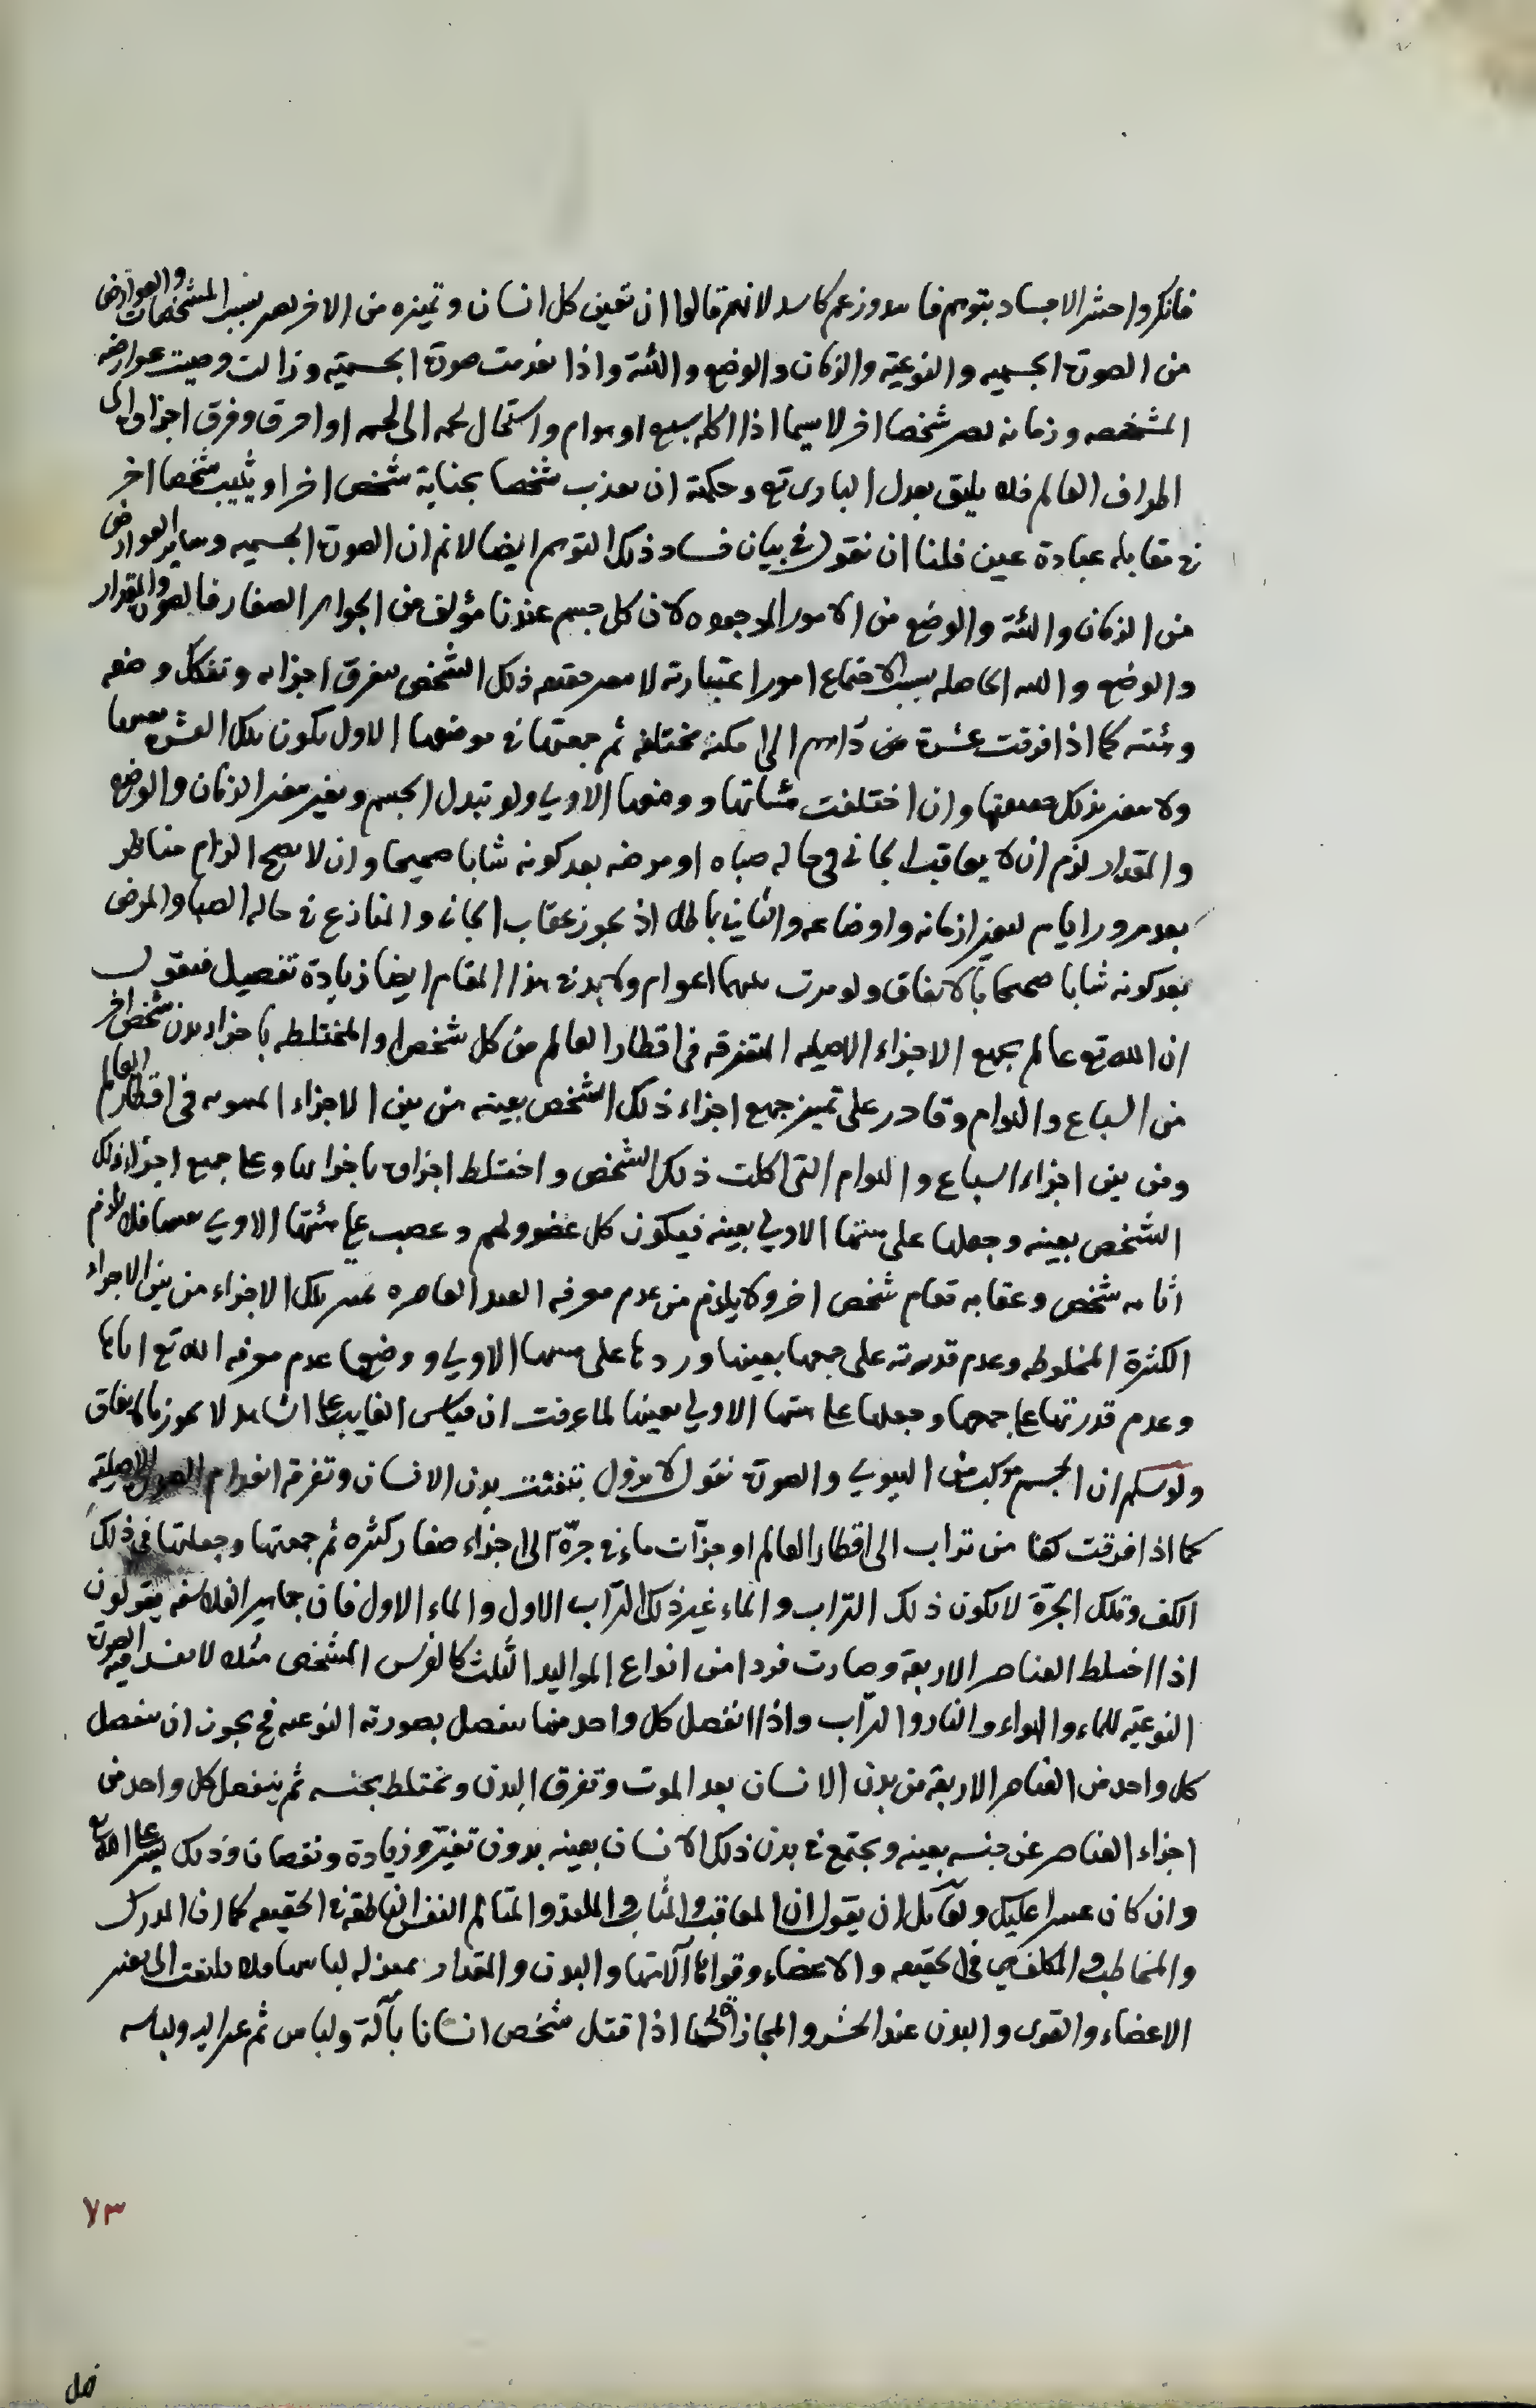 فانكروا حشر الاجساد بتوهم فاسد وزعم كاسد لانهم قالوا ان تعين كل انسان وتميزه من الاخر يصير بسبب المشخصات والعوارض
من الصورة الجسميه والنوعية والزمان والوضع والهئة واذا انعدمت صورة الجسمية وزالت عوارضه
المشخصه وزمانه يصير شخصا اخر لاسيما اذا اكله سبع او هوام واستحال لحمه الى لحمه او احرق وفرق اجزاؤه الى
اطراف العالم فلا يليق بعدل البارى تع وحكمته ان يعذب شخصا بجناية شخص اخر او يثيب شخصا اخر
فى مقابله عبادة عين فلنا ان نقول فى بيان فساد ذلك التوهم ايضا لانم ان الصورة الجسميه وساير العوارض
من الزمان والهئة والوضع من الامور الموجوده لان كل جسم عندنا مؤلف من الجواهر الصغار فالصورة والمقدار
والوضع والهئه الحاصله بسبب الاجتماع امور اعتبارية لا يتغير حقيقه ذلك الشخص بتفرق اجزائه وتفكك وضعه
وهئته كما اذا فرقت عشرة من دراهم الى امكنه مختلفه ثم جمعتها فى موضعها الاول يكون تلك العشرة بعينها
ولا يتغير بذلك حقيقتها وان اختلفت هئاتها ووضعها الاولى ولو تبدل الجسم وتغير بتغير الزمان والوضع
والمقدار لزم ان لا يعاقب الجانى فى حاله صباه او مرضه بعد كونه شابا صحيحا وان لا يصح الزام مناظر
بعد مرور ايام لتغير ازمانه واوضاعه والثانى باطل اذ يجوز عقاب الجانى والمنازع فى حاله الصبا والمرض
بعد كونه شابا صحيحا بالاتفاق ولو مرت عليهما اعوام ولا بد فى هذا المقام ايضا زيادة تفصيل فنقول
ان الله تع عالم بجميع الاجزاء الاصليه المتفرقه فى اقطار العالم من كل شخص والمختلطه باجزاء بدن شخص اخر
من السباع والهوام وقادر على تميز جميع اجزاء ذلك الشخص بعينه من بين الاجزاء فى اقطار العالم
ومن بين اجزاء السباع والهوام التى اكلت ذلك الشخص واختلط اجزاؤه باجزائها وعلى جميع اجزاء ذلك
الشخص بعينه وجعلها على هئتها الاولى بعينه فيكون كل عضو ولحم وعصب على هئتها الاولى بعينها فلا يلزم
اثابه شخص وعقابه مقام شخص اخر ولا يلزم من عدم معرفه العبد القاصره تميز تلك الاجزاء من بين الاجزاء
الكثيرة المخلوطه وعدم قدرته على جمعها بعينها وردها على هئتها الاولى ووضعها عدم معرفه الله تع اياها
وعدم قدرتها على جمعها وجعلها على هئتها الاولى بعينها لما عرفت ان قياس الغايب على الشاهد لا يجوز بالاتفاق
ولو سلم ان الجسم مركب من الهيولى والصورة نقول لا يزول بتفتت بدن الانسان وتفرقه انعدام الصورة الاصلية
كما اذا فرقت كفا من تراب الى اقطار العالم او جزّات ماء فى جرّة الى اجزاء صغار كثيره ثم جمعتها وجعلتها فى ذلك
الكف وتلك الجرّة لا يكون ذلك التراب والماء غير ذلك التراب الاول والماء الاول فان جماهير الفلاسفه يقولون
اذا اختلط العناصر الاربعة وصارت فردا من انواع المواليد الثلث كالفرس المشخص مثلا لا يفسد فيه الصورة
النوعية للماء والهواء والنار والتراب واذا انفصل كل واحد منها ينفصل بصورته النوعيه فح يجوز ان ينفصل
كل واحد من العناصر الاربعة من بدن الانسان بعد الموت وتفرق البدن ويختلط بجنسه ثم ينفصل كل واحد من
اجزاء العناصر عن جنسه بعينه ويجتمع فى بدن ذلك الانسان بعينه بدون تغير وزيادة ونقصان وذلك يسير على الله تع
وان كان عسيرا عليك ولقائل ان يقول ان المعاقب والمثاب والملتذ والمتالم النفس الناطقة فى الحقيقه كما ان المدرك
والمخاطب والمكلف هى فى الحقيقه والاعضاء وقواها آلاتها والبدن والمقدار بمنزله لباسها فلا يلتفت الى تغير
الاعضاء والقوى والبدن عند الحشر والمجازاة كما اذا قتل شخص انسانا بآلة ولباس ثم غير اليه ولباسه
٧٣